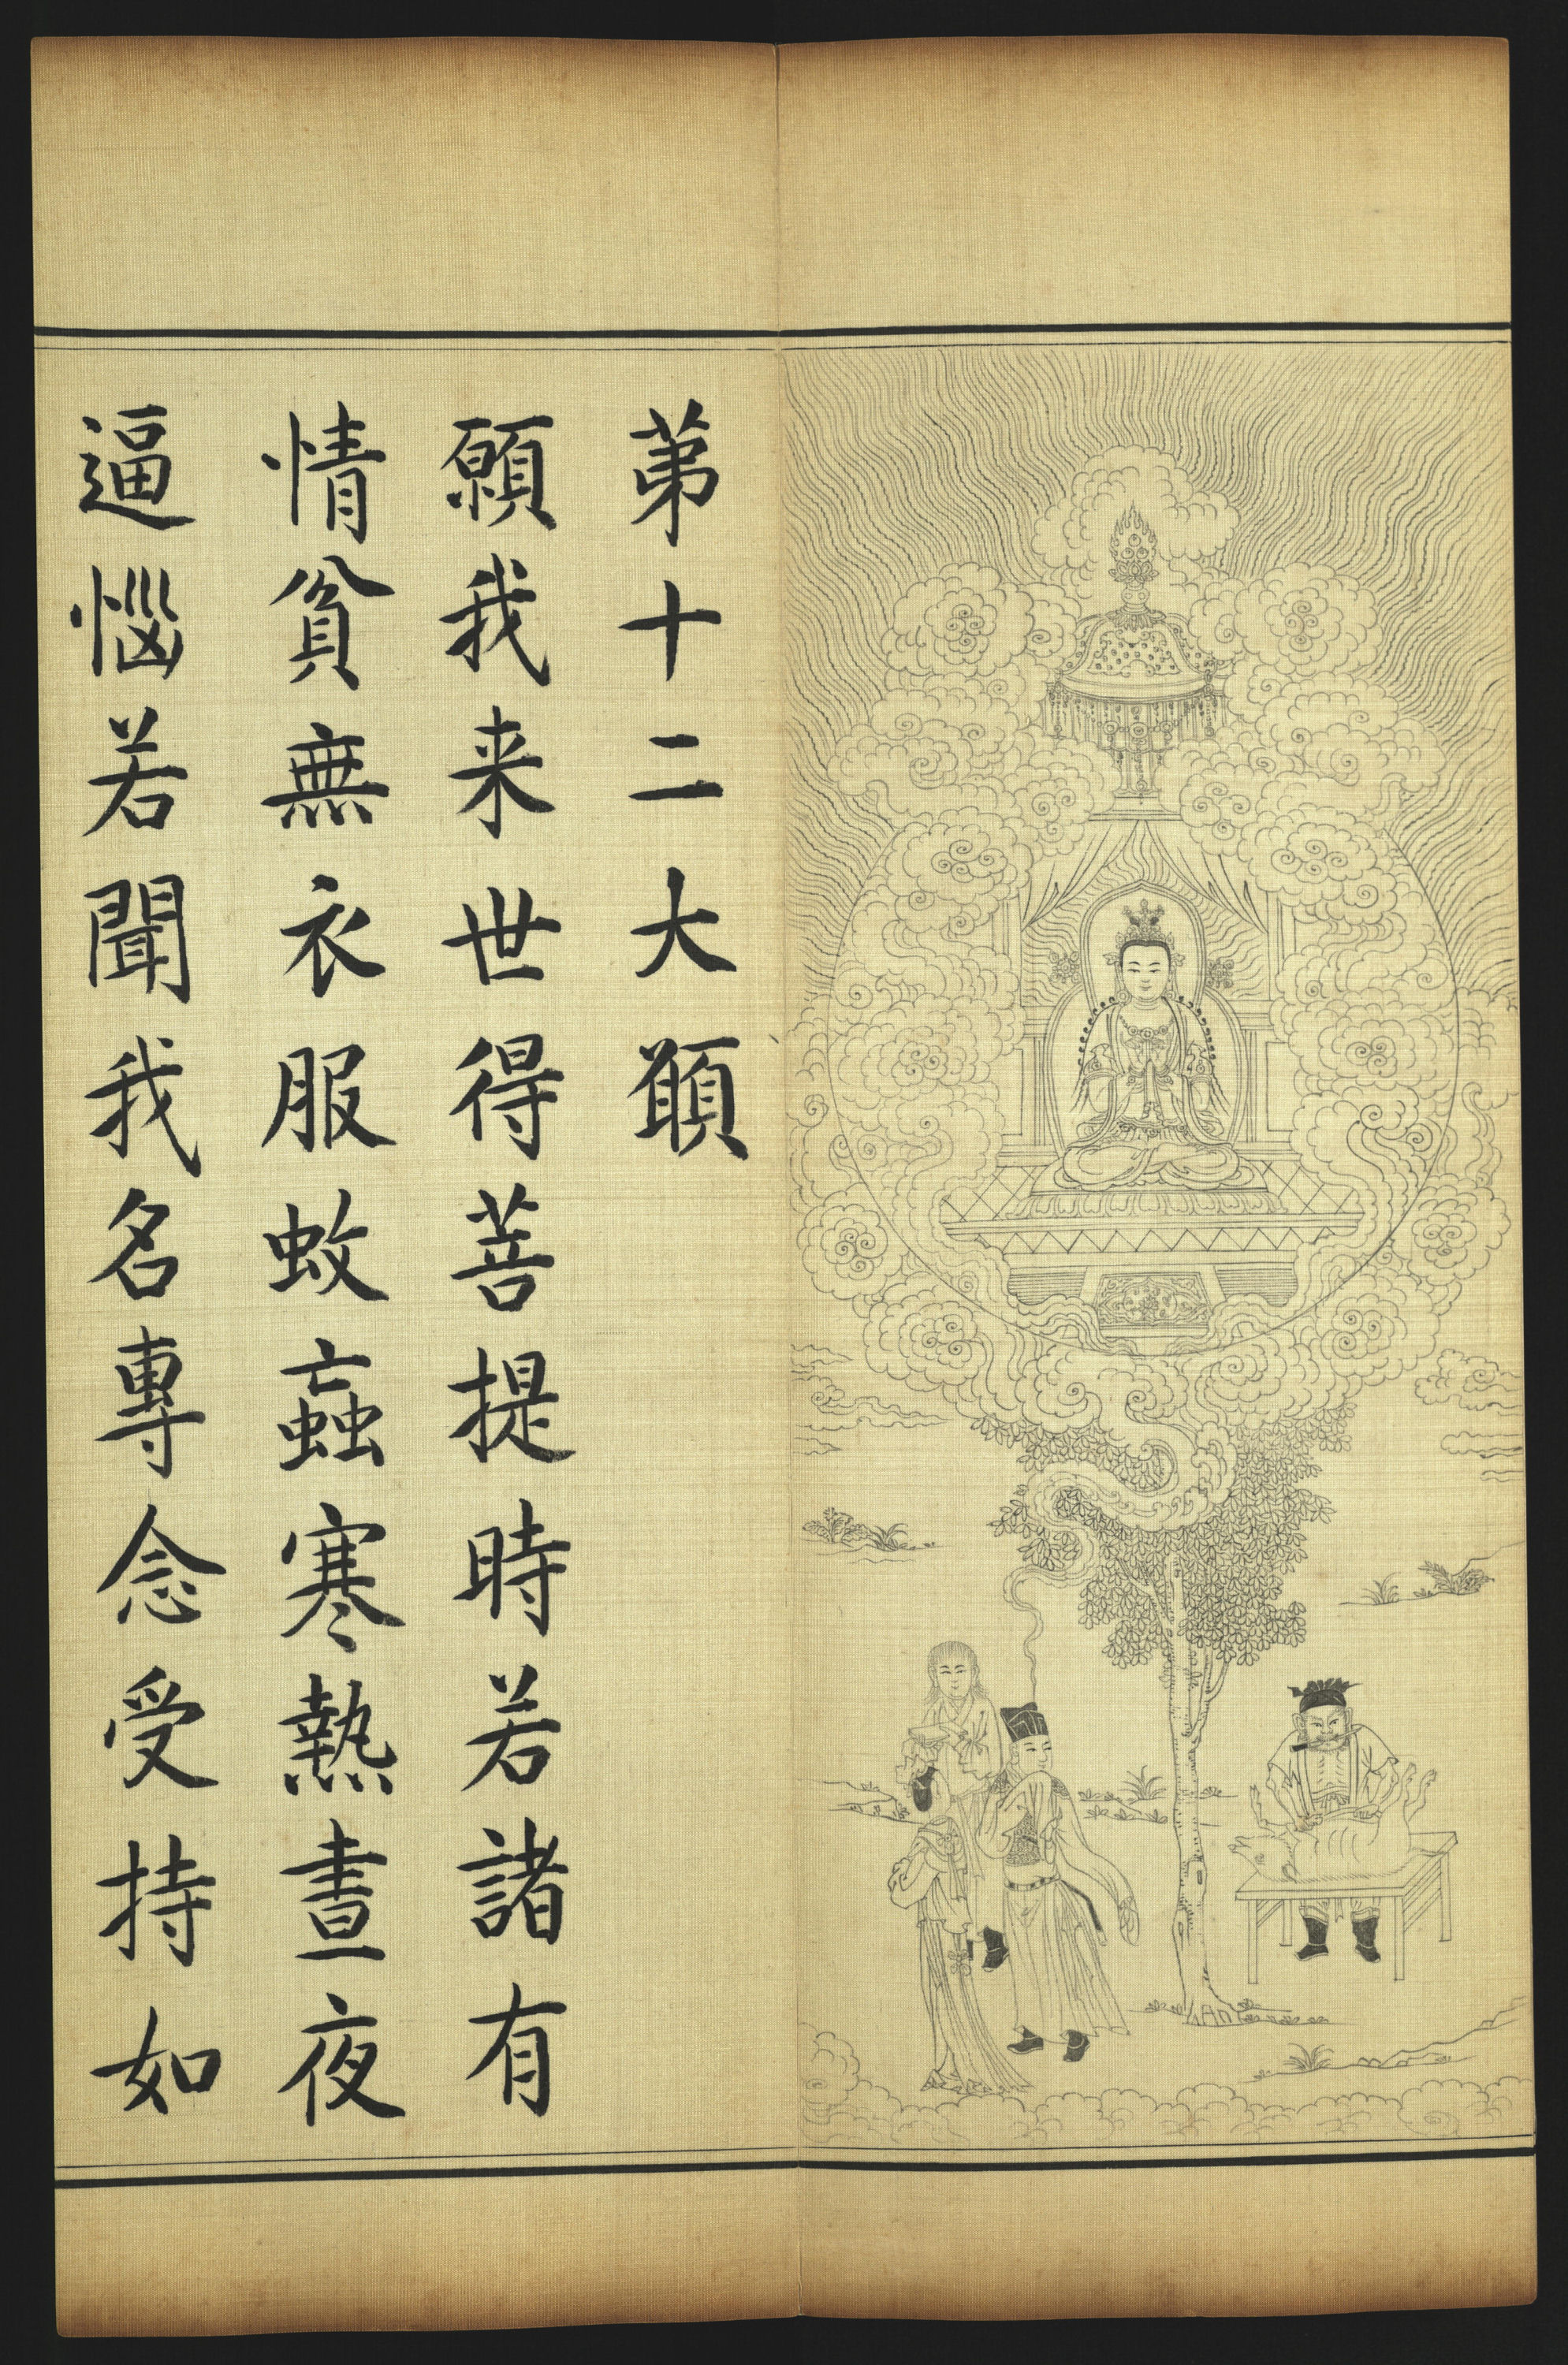 苐十二大願
願我来世得菩提時若諸有
情貧無衣服蚊蝱寒熱晝夜
逼惱若聞我名專念受持如